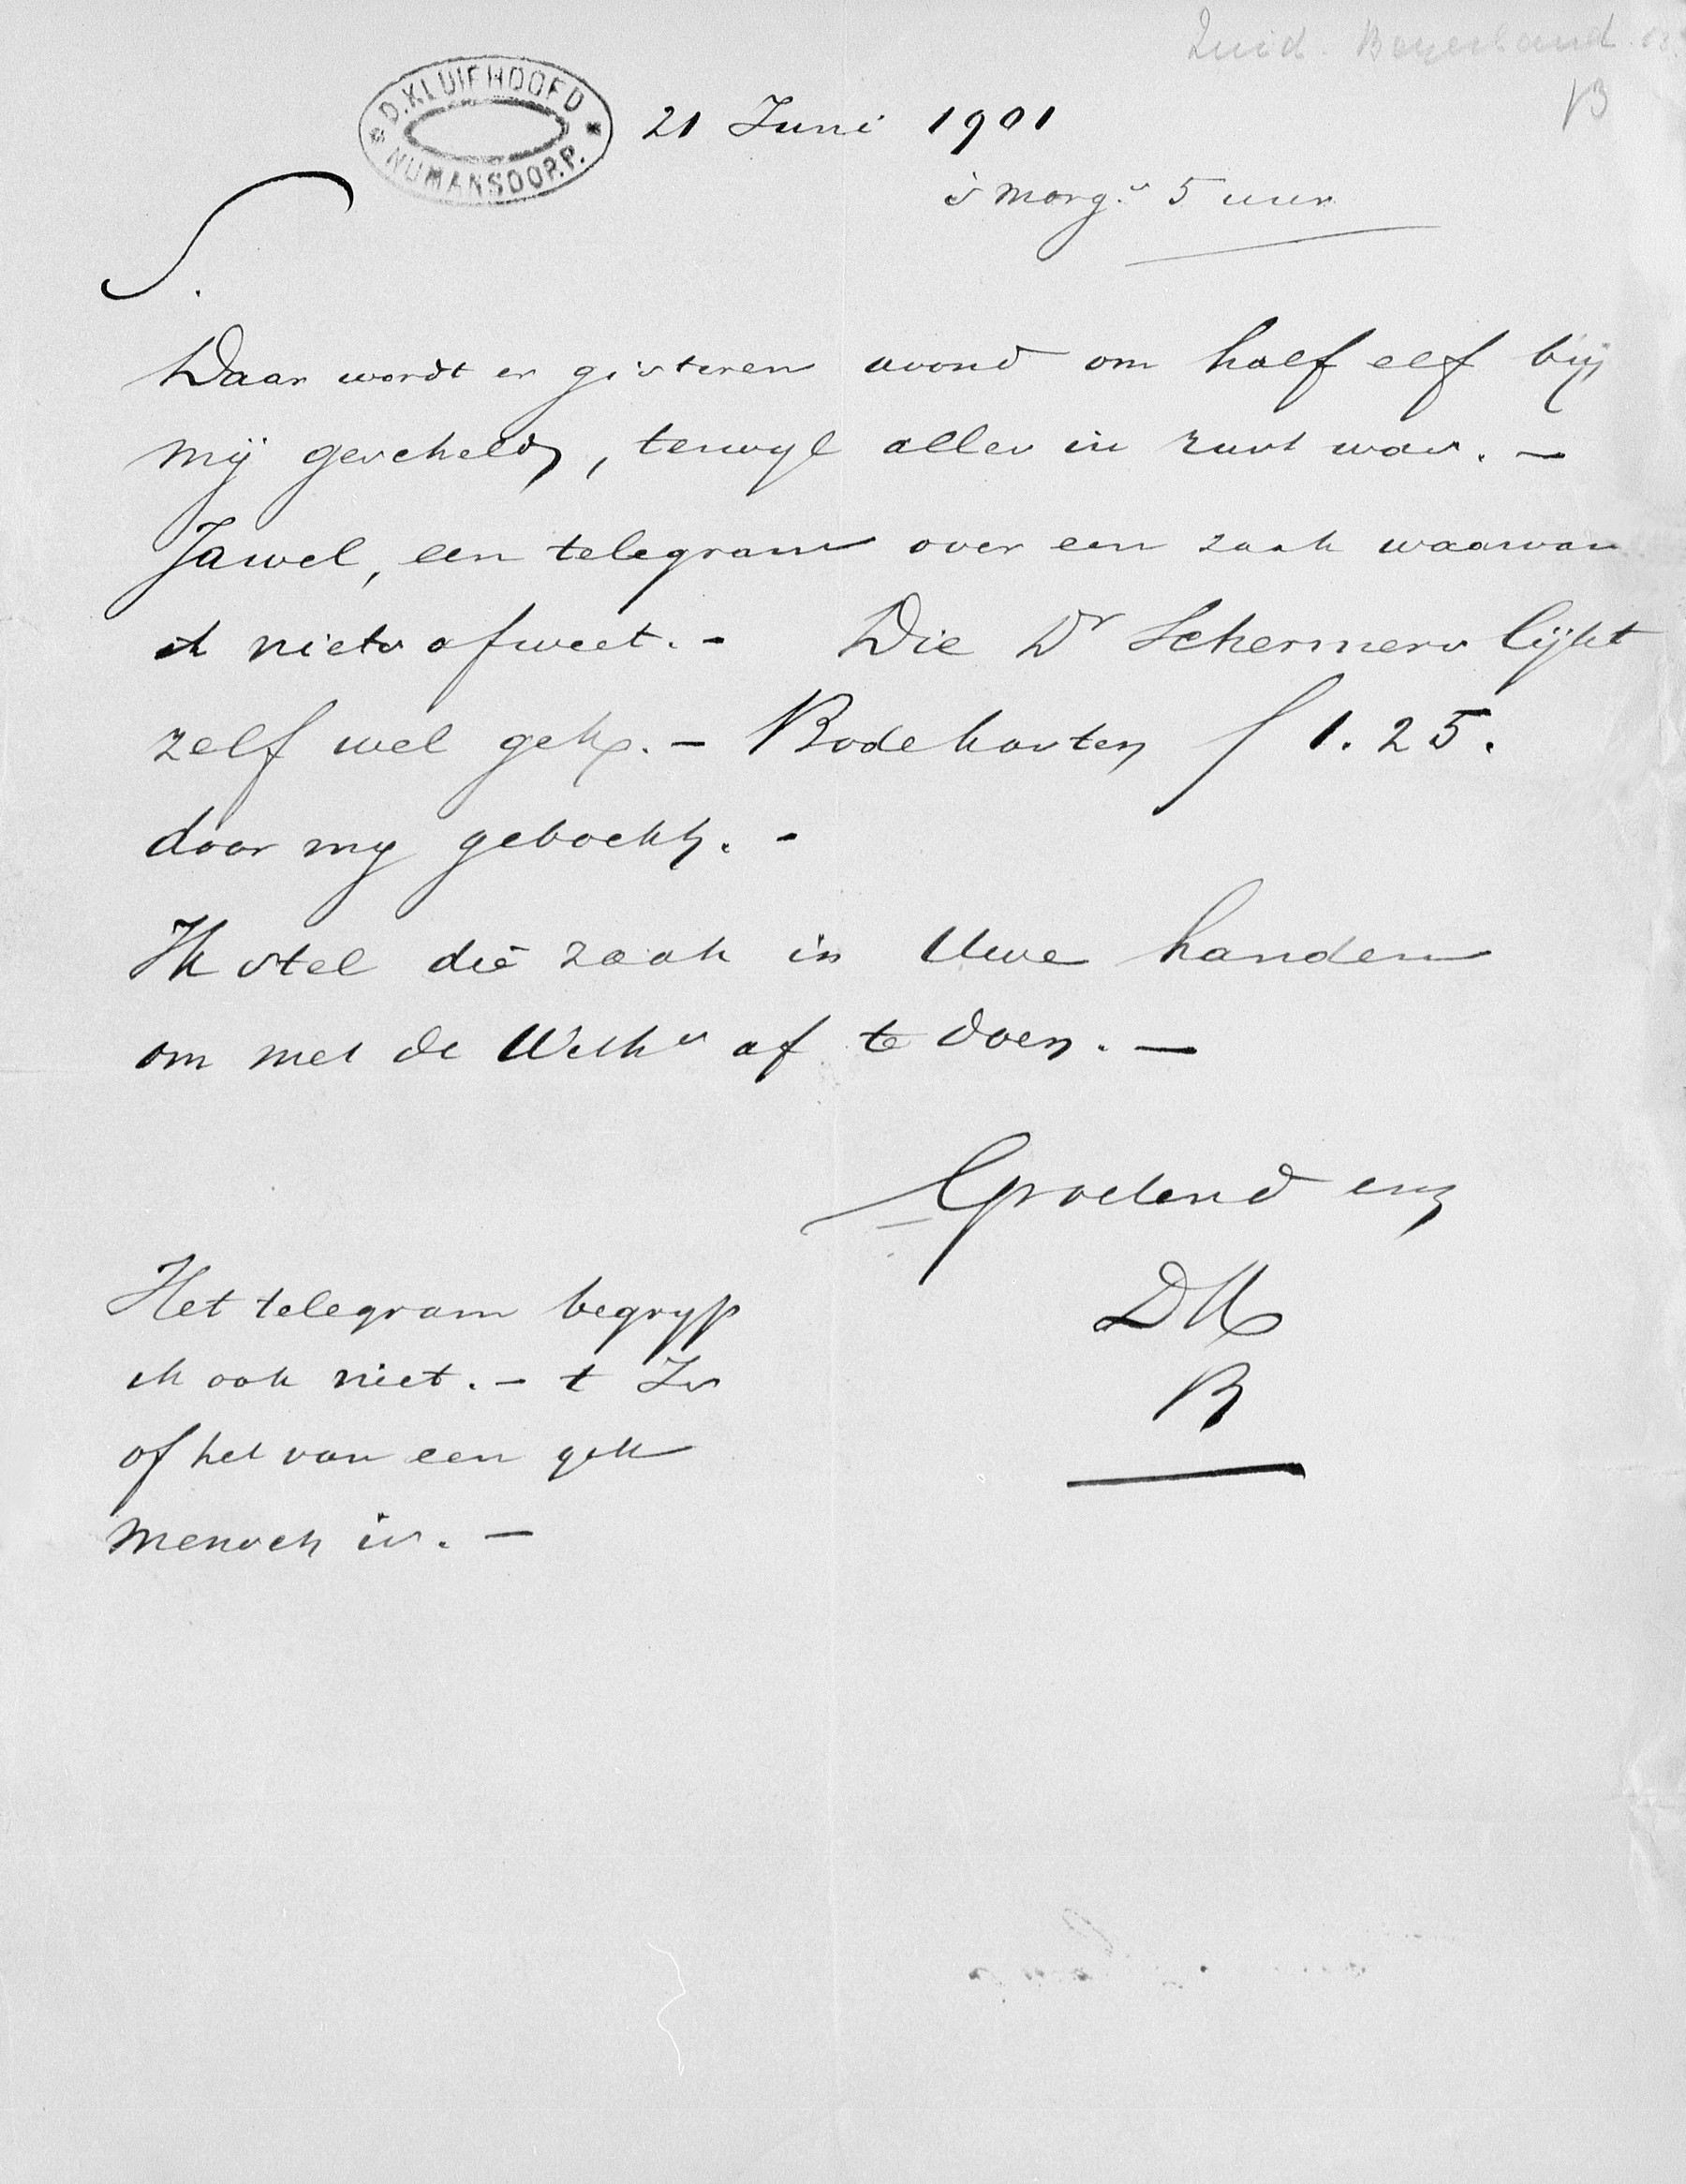 Zuid. Beyerland
B
D. KLUIFHOOFD
NUMANSDORP.
21 Juni 1901
's morgs 5 uur
S.
Daar wordt er gisteren avond om half elf bij
mij gescheld, terwyl alles in rust was. —
Jawel, een telegram over een zaak waarvan
ik niets afweet. - Die Dr Schermers lijkt
zelf wel gek. - Bodekosten f 1.25.
door my geboekt. -
Ik stel die zaak in Uwe handen
om met de Weths af te doen. —
Groetend enz
DK
B
Het telegram begryp
ik ook niet. - t Is
of het van een gek
mensch is. —